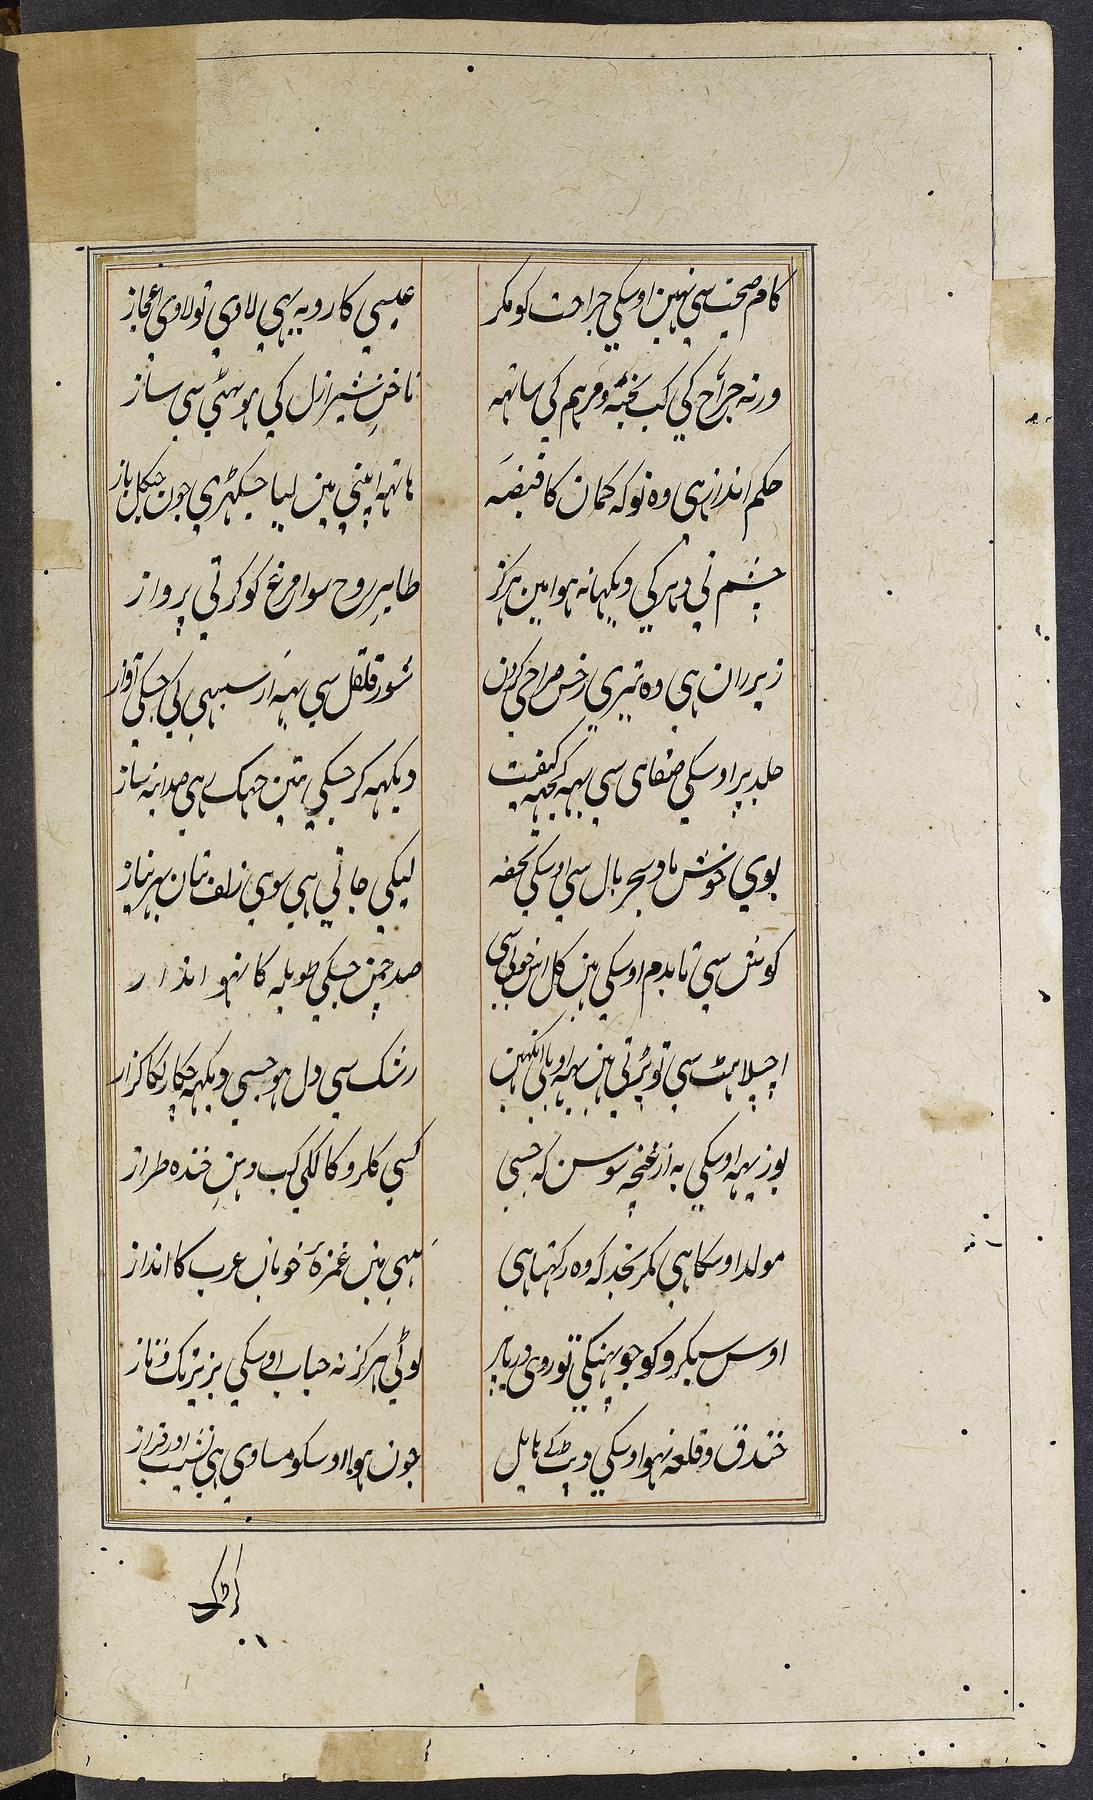 کام صحت سی نہین اوسکی جراحت کو مکر
عیسی کا رویہ یہی لاوی تو لاوی اعجاز
ورنہ جراح کی کب بخیہ و مرہم کی ساتہہ
ناخنِ شیر ازل کی ہو سہتی سی ساز
حکم انداز ہی وہ تو کہ کمان کا قبضہ
ہاتہہ اپنی مین لیا جسکہڑی جون چنکل باز
چشم نی دہر کی دیکہا نہ ہوا مین ہرکز
طایرِ روح سوا مرغ کو کرتی پرواز
زیر ران ہی وہ تیری رخش صراحی کردن
شور قلقل سی بہہ از سیہی کی جسکی آواز
جلد پر اوسکی صفاہی سی یہہ کچہہ کیفیت
دیکہہ کر جسکی تئین جہک رہی صد اینہ ساز
بوی خوش باد سحر بال سی اوسکی تحفہ
لیکی جاتی ہی سوی زلف بتان بہر نیاز
کوش سی تا بدم اوسکی ہین کل اس خوبی سی
صد چمن جسکی طویلہ کا نہو انداز
اچپلاہٹ سی تو پڑتی ہین یہہ اوبلی انکہین
رشک سی دل ہو جسی دیکہہ چکاریکا کزار
پوز یہہ اوسکی بہ از غنچہ سوسن کہ جسی
کسی کلرو کا لکی کب دہنِ خندہ طراز
مولد اوسکا ہی مکر نجد کہ وہ رکہتا ہی
سبہی مین غمزۂ خوبان عرب کا انداز
اوس سبکرو کو جو پہنیکی تو روی دریا پر
ٹوٹی ہرکز نہ حباب اوسکی بزیر تک و تاز
خندق و قلعہ نہو اوسکی ڈپٹ کے حایل
جون ہوا اوسکو مساوی ہی نشیب اور فراز